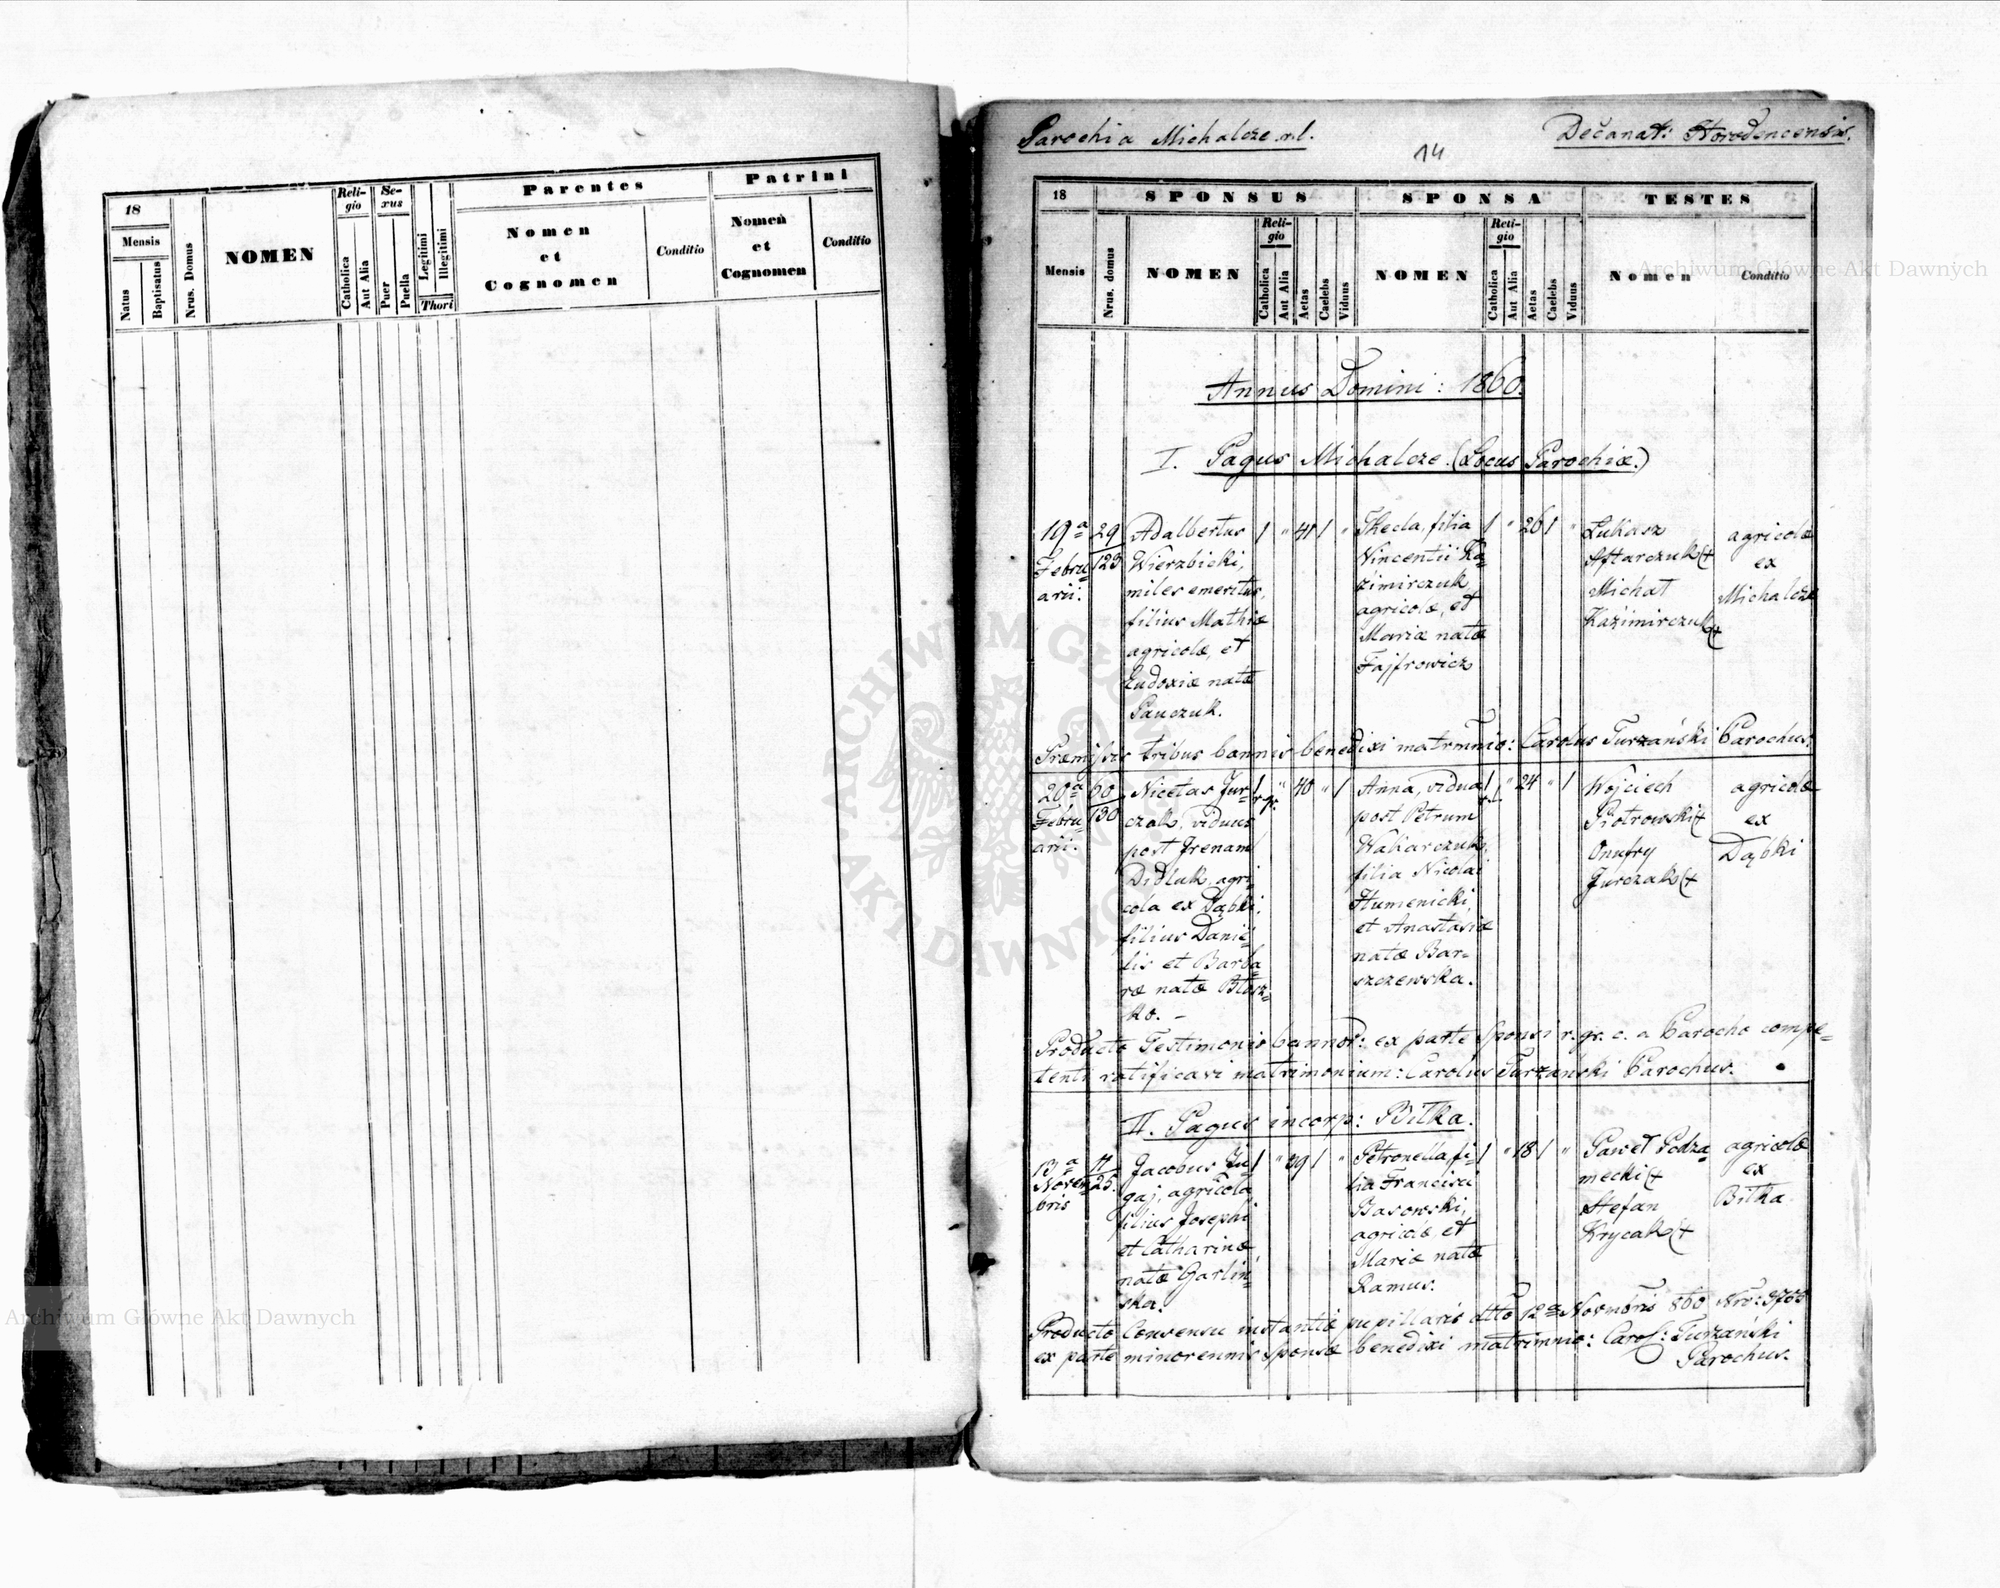 18
Mensis
Natus
Baptisatus
Nrus. Domus
NOMEN
Reli-
gio
Catholica
Aut Alia
Se-
xus
Puer
Puella
Legitimi
Illegitimi
Thori
Parentes
Nomen
et
Cognomen
Conditio
Patrini
Nomen
et
Cognomen
Conditio
Archiwum Główne Akt Dawnych
Parochia Michalcze r.l.
Decanat: Horodencensis.
14
18
SPONSUS
SPONSA
TESTES
Mensis
Nrus. domus
NOMEN
Reli-
gio
Catholica
Aut Alia
Aetas
Caelebs
Viduus
NOMEN
Reli-
gio
Catholica
Aut Alia
Aetas
Caelebs
Viduus
Nomen
Conditio
Archiwum Główne Akt Dawnych
Annus Domini: 1860.
I. Pagus Michalcze. (Locus Parochiæ.)
19a
Febru=
arii.
29
123
Adalbertus
Wierzbicki,
miles emeritus,
filius Mathiæ
agricolæ, et
Eudoxiæ natæ
Pauczuk.
1 " 41 1 "
Thecla, filia
Vincentii Ka=
zimirczuk
agricolæ, et
Mariæ natæ
Fajfrowicz
1 " 26 1 "
Łukasz
Aftarczuk (+
Michał
Kazimirczuk (+
agricolæ
ex
Michalcze
Præmissis tribus bannis benedixi matrmnio: Carolus Turzański Parochus.
20a
Febru=
arii.
60
130
Nicetas Jur=
czak, viduus
post Irenam
Didluk, agri=
cola ex Dąbki,
filius Danie=
lis et Barba=
ræ natæ Błosz=
ko. -
1 r.gr. " 40 " 1
Anna, vidua
post Petrum
Waharczuk,
filia Nicolai
Humenicki,
et Anastasiæ
natæ Bar=
szczewska.
1 r.l. " 24 " 1
Wojciech
Piotrowski (+
Onufry
Jurczak (+
agricolæ
ex
Dąbki
Producto Testimonio bannor: ex parte Sponsi r. gr. c. a Parocho compe=
tenti ratificavi matrimonium: Carolus Turzański Parochus.
II. Pagus incorp: Biłka.
13a
Novem=
bris
11
25.
Jacobus Ju=
gaj, agricola
filius Josephi
et Catharinæ,
natæ Garlin=
ska.
1 " 29 1 "
Petronella fi=
lia Francisci
Basowski,
agricolæ, et
Mariæ natæ
Ramus.
1 " 18 1 "
Paweł Podza=
mecki (+
Stefan
Krycak (+
agricolæ
ex
Biłka.
Producto Consensu instantiæ pupillaris dtto 12a Novmbris 860 Nro: 3700
ex parte minorennis Sponsæ benedixi matrimnio: Carol: Turzański
Parochus.
ARCHIWUM GŁÓWNE AKT DAWNYCH